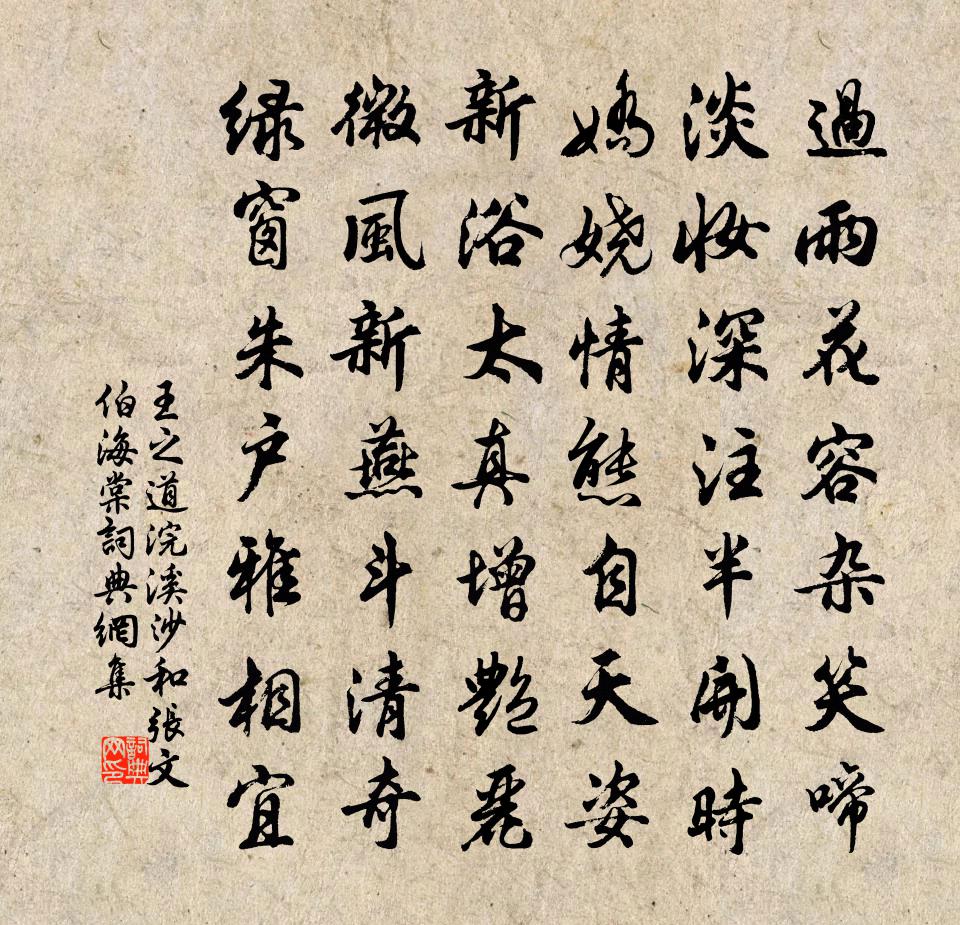 過雨花容杂笑啼
淡妆深注半開時
嬌嬈情態自天姿
新浴太真增艷麗
微風新燕斗清奇
绿窗朱户雅相宜
王之道浣溪沙和張文
伯海棠詞典網集
詞典
网印